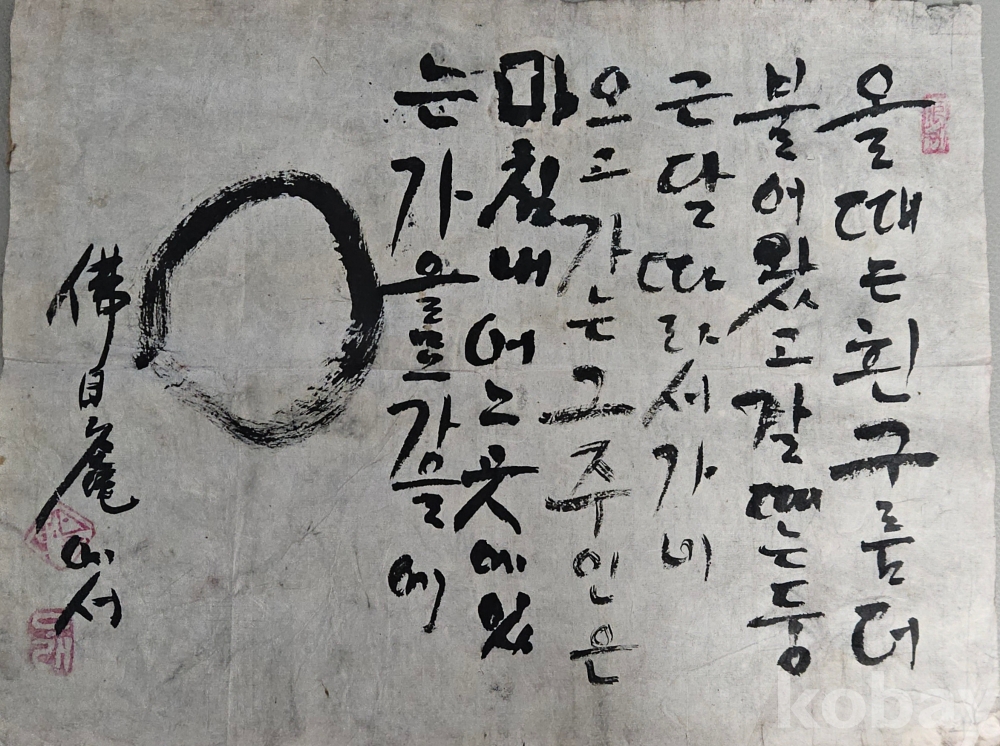 올때는흰구름더
불어왔고갈때는둥
근달따라서가
오고가는그주인은
마침내어느곳에있
는가 가을에
佛日庵에서
kobay